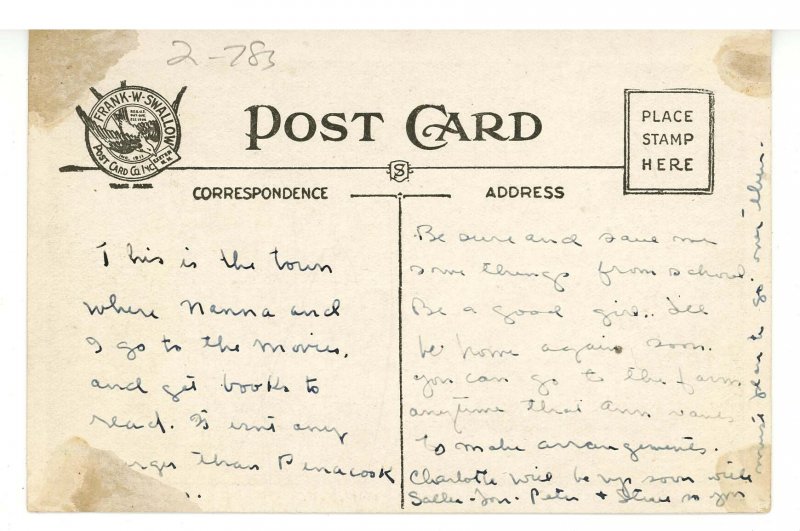 2-783
FRANK·W·SWALLOW
POST CARD CO. INC.
EXETER N.H.
INC. 1911
TRADE MARK
POST CARD
S
PLACE
STAMP
HERE
CORRESPONDENCE
ADDRESS
This is the town
where Nanna and
I go to the movies,
and get books to
read. It isnt any
larger than Penacook
Be sure and save me
some things from school.
Be a good girl. I'll
be home again, soon.
you can go to the farm
anytime that Ann wants
to make arrangements.
Charlotte will be up soon with
Peter + Steve so you
must plan to go over then.